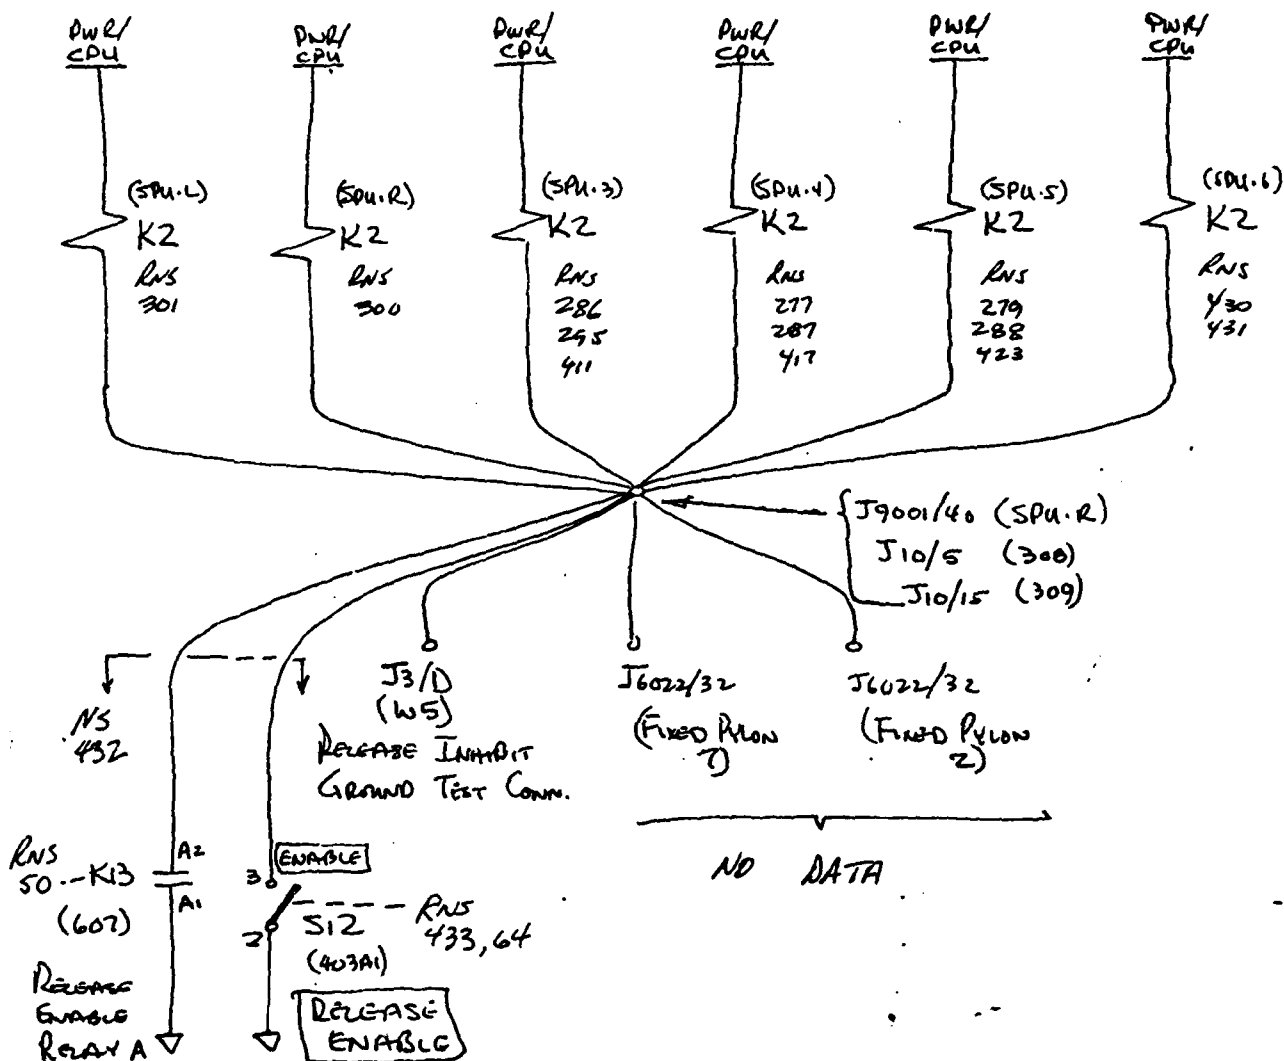 PWR/
CPU
PWR/
CPU
PWR/
CPU
PWR/
CPU
PWR/
CPU
PWR/
CPU
(SPU.L)
K2
RNS
301
(SPU.R)
K2
RNS
300
(SPU.3)
K2
RNS
286
295
411
(SPU.4)
K2
RNS
277
287
417
(SPU.5)
K2
RNS
279
288
423
(SPU.6)
K2
RNS
430
431
J9001/40 (SPU.R)
J10/5 (308)
J10/15 (309)
NS
432
J3/D
(W5)
RELEASE INHIBIT
GROUND TEST CONN.
J6022/32
(FIXED PYLON
1)
J6022/32
(FIXED PYLON
2)
NO DATA
RNS
50 -- K13
(607)
A2
A1
RELEASE
ENABLE
RELAY A
ENABLE
3
2
S12
(403A1)
RNS
433, 64
RELEASE
ENABLE